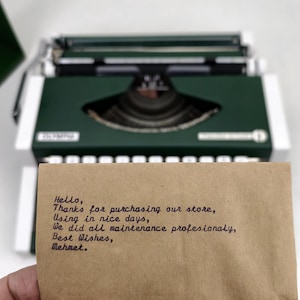 OLYMPIA
Hello,
Thanks for purchasing our store,
Using in nice days,
We did all maintenance profesionaly,
Best Wishes,
Mehmet.